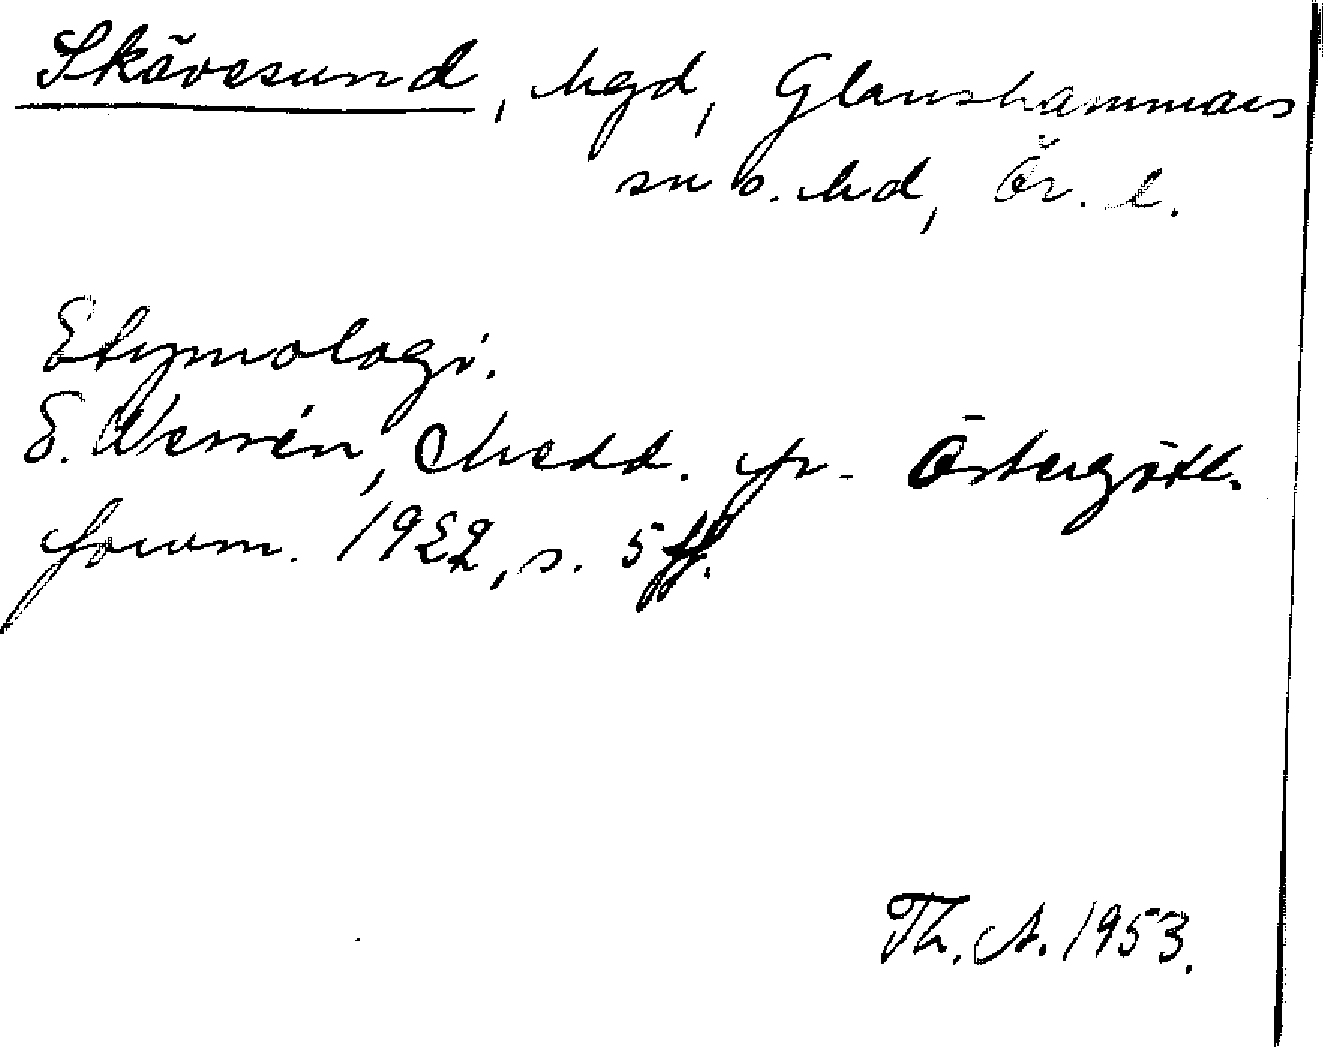 Skävesund, hgd, Glanshammars
sn o. hd, Ör. l.
Etymologi.
E. Wessén, Medd. fr. Östergötl.
fornm. 1922, s. 5 ff.
Th. A. 1953.